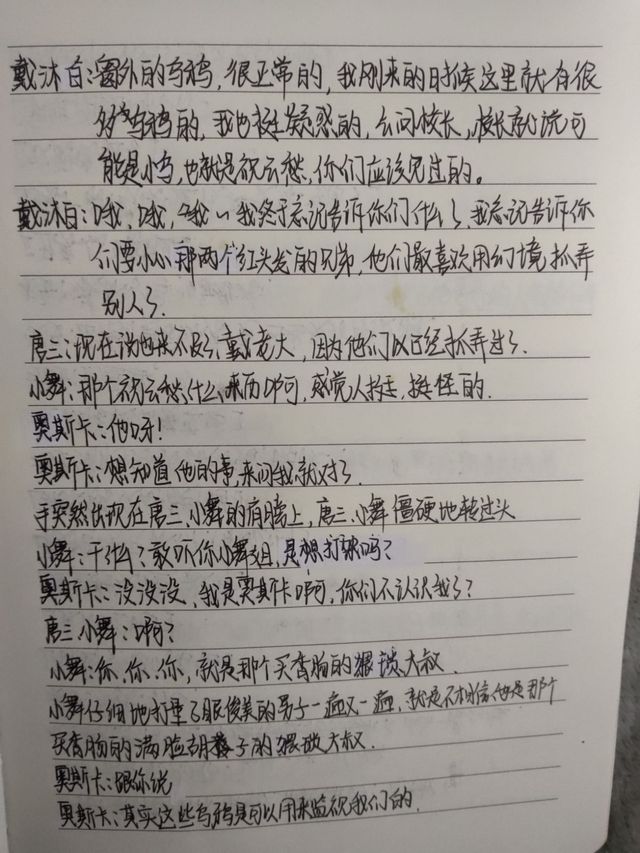 戴沐白:窗外的乌鸦,很正常的,我刚来的时候这里就有很
多乌鸦的,我也挺疑惑的,去问校长,校长就说可
能是小乌,也就是祝云愁,你们应该见过的。
戴沐白:哦,哦,哦~我终于忘记告诉你们什么了,我忘记告诉你
们要小心那两个红头发的兄弟,他们最喜欢用幻境抓弄
别人了.
唐三:现在说也来不及了,戴老大,因为他们以已经抓弄过了.
小舞:那个祝云愁,什么来历啊,感觉人挺,挺怪的.
奥斯卡:他呀!
奥斯卡:想知道他的事,来问我就对了.
手突然出现在唐三,小舞的肩膀上,唐三,小舞僵硬地转过头
小舞:干什么?敢吓你小舞姐,是想打架吗?
奥斯卡:没没没,我是奥斯卡啊,你们不认识我了?
唐三,小舞:啊?
小舞:你,你,你,就是那个买香肠的猥琐大叔.
小舞仔细地打量了眼俊美的男子一遍又一遍,就是不相信他是那个
买香肠的满脸胡子的猥琐大叔.
奥斯卡:跟你说
奥斯卡:其实这些乌鸦是可以用来监视我们的.